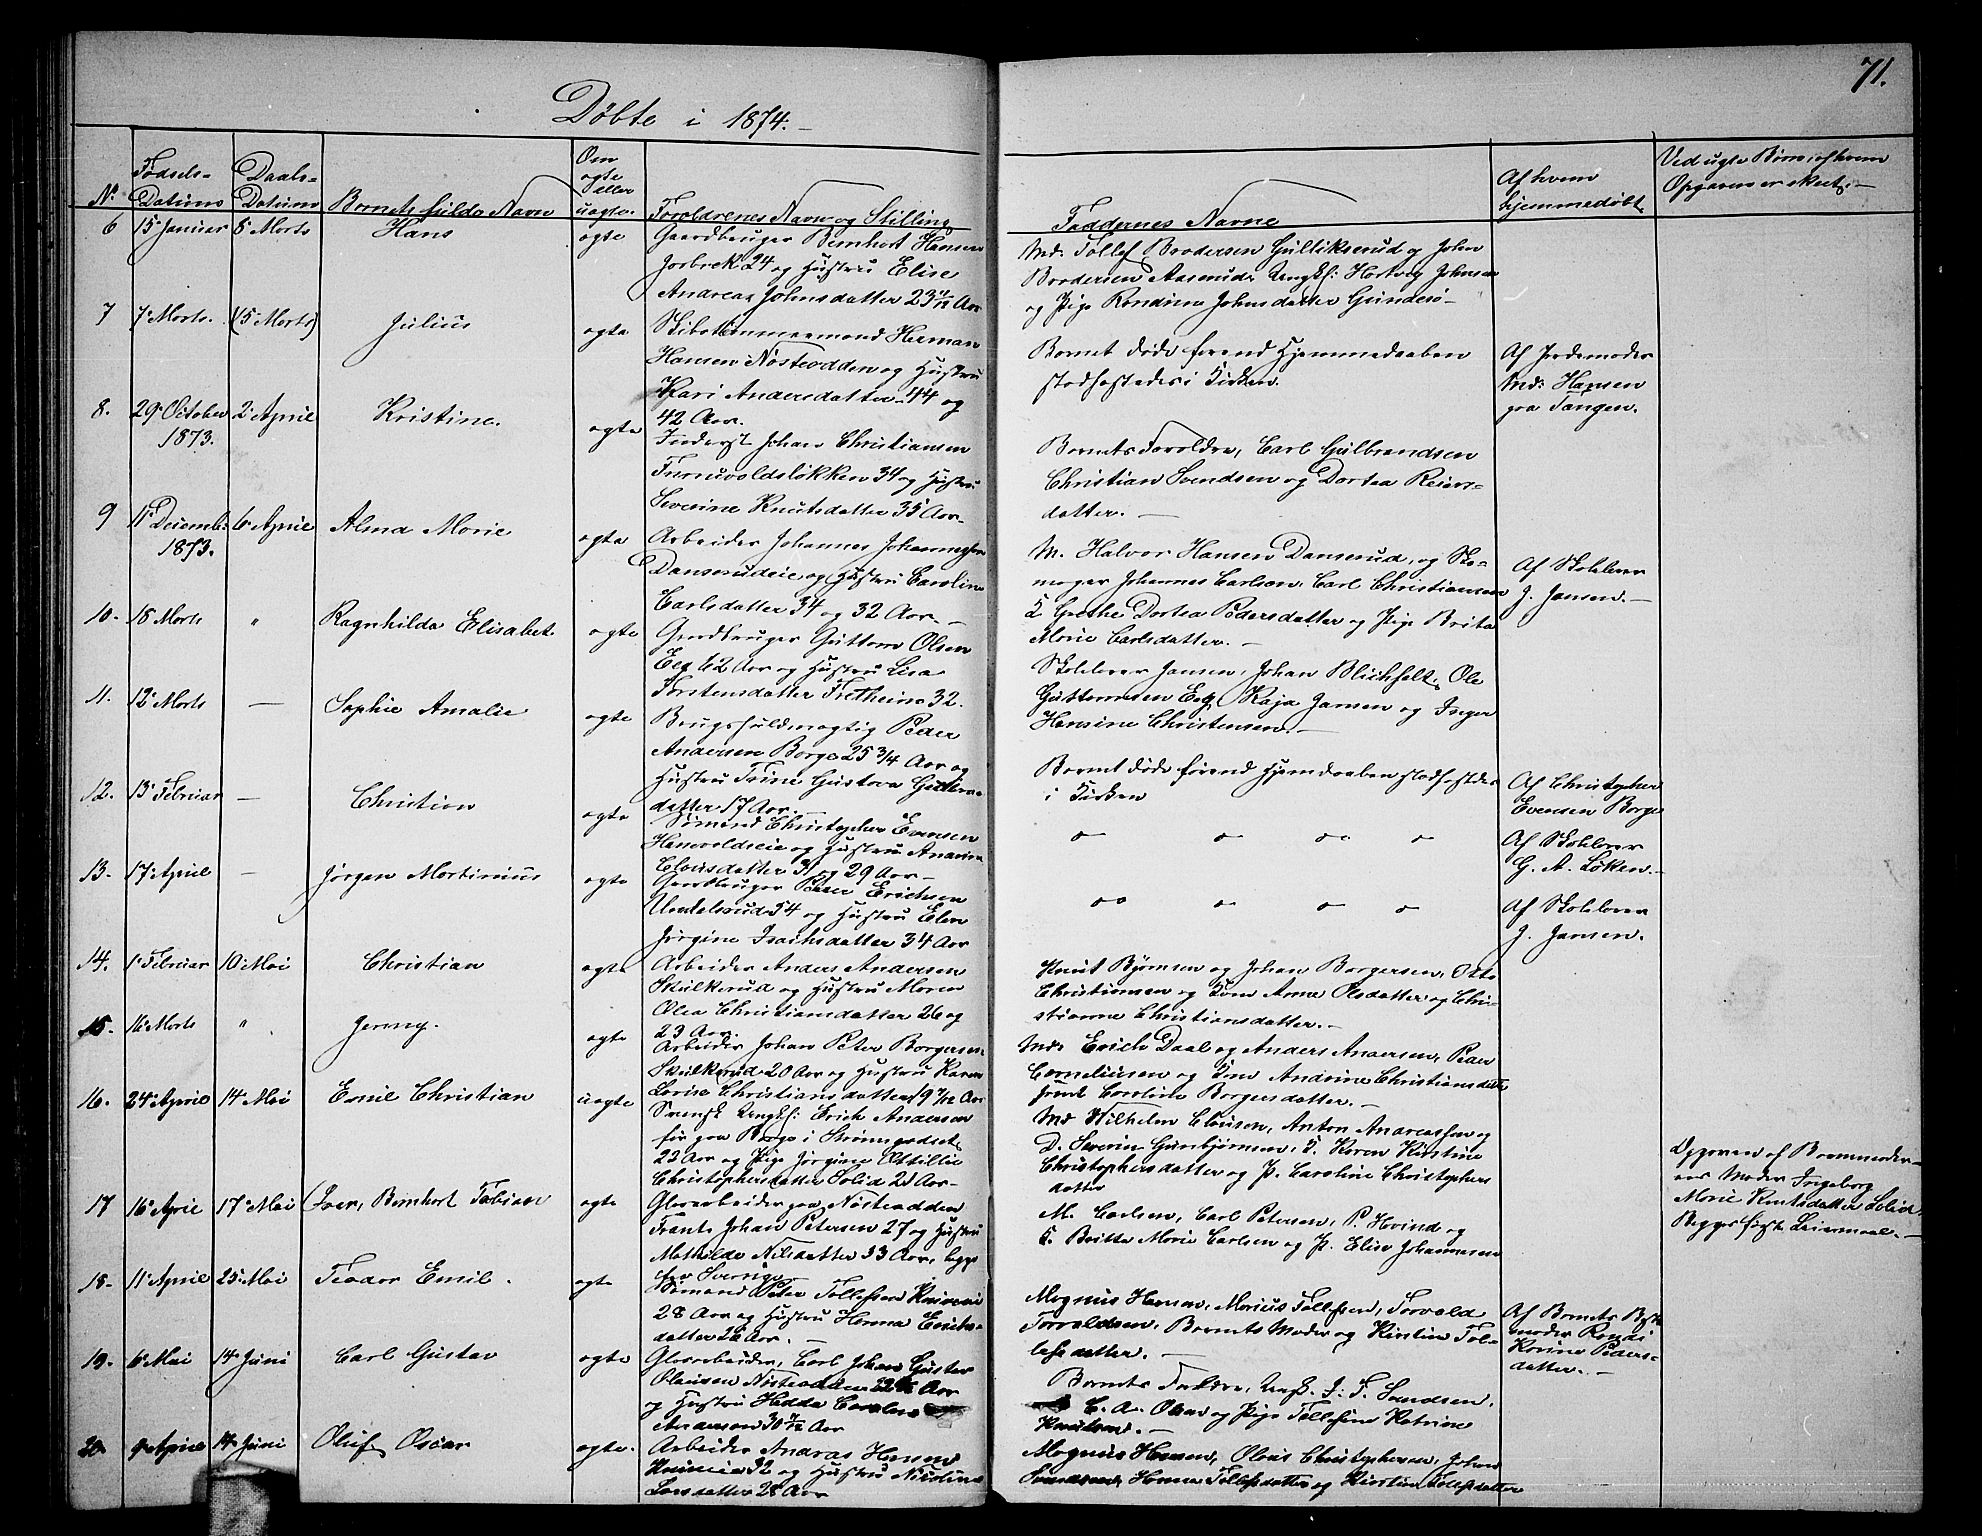 71.
Döbte i 1874.
No
Födsels-
Datum
Daabs-
Datum
Barnets fulde Navn
Om
ægte
eller
uægte.
Forældrenes Navn og Stilling
Faddernes Navne
Af hvem
hjemmedöbt
Ved uægte Börn, af hvem
Opgaven er skeet.
6 15 Januar 8 Marts Hans ægte Gaardbruger Bernhart Hansen
24 og Hustru Elise
Andrea Johnsdatter 23 11/12 Aar
Md: Tollef Brodersen Gulliksrud og Johan
Brodersen Aaserud, Ungkf: Hartvig Johnsen
og Pige Randine Johnsdatter Gundesö
7 7 Marts. (15 Marts) Julius ægte Skibstömmermand Herman
Hansen Nösteodden og Hustru
Kari Andersdatter 44 og
42 Aar.
Barnet döde forend Hjemmedaaben
stadfæstedes i Kirken.
Af Jordemoder
Md: Hansen
paa Tangen.
8. 29 October 2 April Kristine. ægte Inderst Johan Christiansen
1873.
34 og Hustru
Severine Knutsdatter 35 Aar
Barnets Forældre, Carl Gulbrandsen
Christian Svendsen og Dortea Reiers-
datter.
9 11 Decemb. 6 April Alma Marie ægte Arbeider Johannes Johannessen
1873.
Danserudeie og Hustru Caroline
Carlsdatter 34 og 32 Aar
M. Halvor Hansen Danserud, og Sko-
mager Johannes Carlsen, Carl Christiansen
K Grethe Dortea Pedersdatter og Pige Brita
Marie Carlsdatter.
Af Skolelærer
J. Jansen.
10. 18 Marts " Ragnhilda Elisabet ægte Gaardbruger Guttorm Olsen
Eeg 42 Aar og Hustru Lisa
Torstensdatter Fretheim 32.
Skolelærer Jansen, Johan Blichfelt, Ole
Guttormsen Eeg, Kaja Jansen og Inger
Hansine Christensen.
11. 12 Marts — Sophie Amalie ægte Brugsfuldmægtig Peder
Andersen Borge 25 3/4 Aar og
Hustru Trine Gustava
datter 17 Aar.
Barnet döde forend Hjemdaaben stadfæstedes
i Kirken
Af Christopher
Evensen Borge
12. 13 Februar — Christian ægte Sömand Christopher Evensen
og Hustru
31 og 29 Aar
Af Skolelærer
G. A. Löken.
13. 17 April — Jörgen Martinius ægte Gaardbruger Peder Erichsen
54 og Hustru Elen
Jörgine Isachsdatter 34 Aar
Af Skolelærer
J. Jansen.
14. 1 Februar 10 Mai Christian ægte Arbeider Anders Andersen
Skulkerud og Hustru Maren
Olea Christiansdatter 26 og
23 Aar.
Knut Björnsen og Johan Borgersen, Otto
Christiansen og Kone Anna Olsdatter og Chri-
stianne Christiansdatter.
15. 16 Marts " Jenny. ægte Arbeider Johan Peter Borgersen
Skulkerud 20 Aar og Hustru Karen
Lovise Christiansdatter 19 7/12 Aar
Md: Erich Daal og Anders Andersen, Peder
Corneliusen og Kone Andrine Christiansdatter
Caroline Borgersdatter.
16. 24 April 14 Mai Emil Christian uægte Svensk Ungkf: Erich Andersen
för paa Borge i Strömgodset
22 Aar og Pige Jörgine Ottillie
Christophersdatter Solid 21 Aar
Md Wilhelm Clausen, Anton Andreassen og
D. Severin Gunbjörnsen, K. Karen Kirstine
Christophersdatter og P. Caroline Christophers
datter
Opgaven af Barnemoder-
ens Moder Ingeborg
Marie Knutsdatter Solid.
Begges förste Leiermaal.
17 16 April 17 Mai Ivar, Bernhart Fabian ægte Glasarbeider paa Nösteodden
Frants Johan Petersen 27 og Hustru
Mathilde Nilsdatter 33 Aar, begge
fra Sverige
M. Carlsen, Carl Petersen, P. Hvind og
K. Britta Marie Carlsen og P. Elise Johannesen
18. 11 April 25 Mai Teodor Emil. ægte Sömand Peter Tollefsen
28 Aar og Hustru Hanna Erichs-
datter 26 Aar.
Magnus Hansen, Marius Tollefsen, Torvald
Torvaldsen, Barnets Moder og Kirstine Tol-
lefsdatter.
Af Barnets Beste
moder
Karine Peders-
datter.
19. 6 Mai 14 Juni Carl Gustav ægte Glasarbeider, Carl Johan Gustav
Olausen Nösteodden
og Hustru Hedda
Andersen 30 Aar
Barnets Forældre, Ungk. J. F. Svendsen,
C. A. Olsen og Pige Tollefine Katrine
Knutsen.
20. 9 April 14 Juni Oluf Oscar ægte. Arbeider Andreas Hansen
32 og Hustru Nicoline
Larsdatter 28 Aar
Magnus Hansen, Olaus Christophersen, Johan
Svendsen, Hanna Tollefsdatter og Kirstine Tollefsdatter